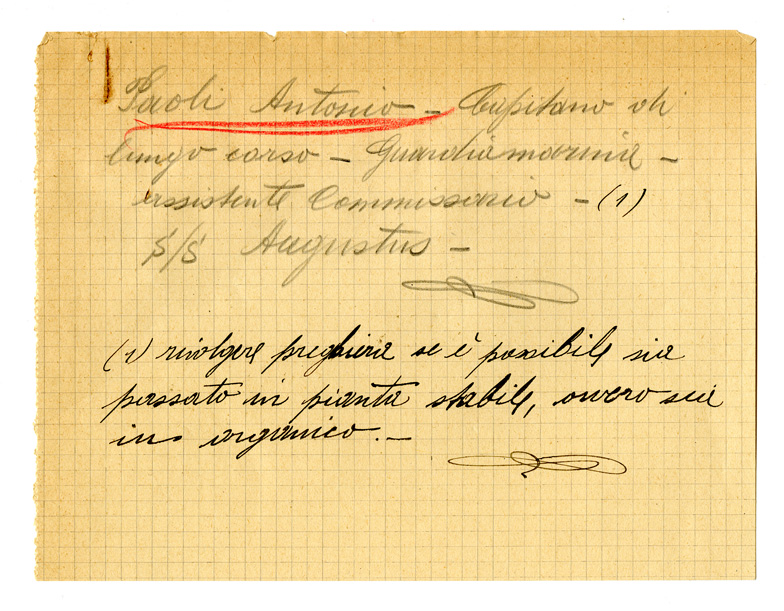 Paoli Antonio - Capitano di
lungo corso - Guardiamarina -
assistente Commissario - (1)
S/S Augustus -
(1) rivolgere preghiera se è possibile sia
passato in pianta stabile, ovvero sia
in organico. -